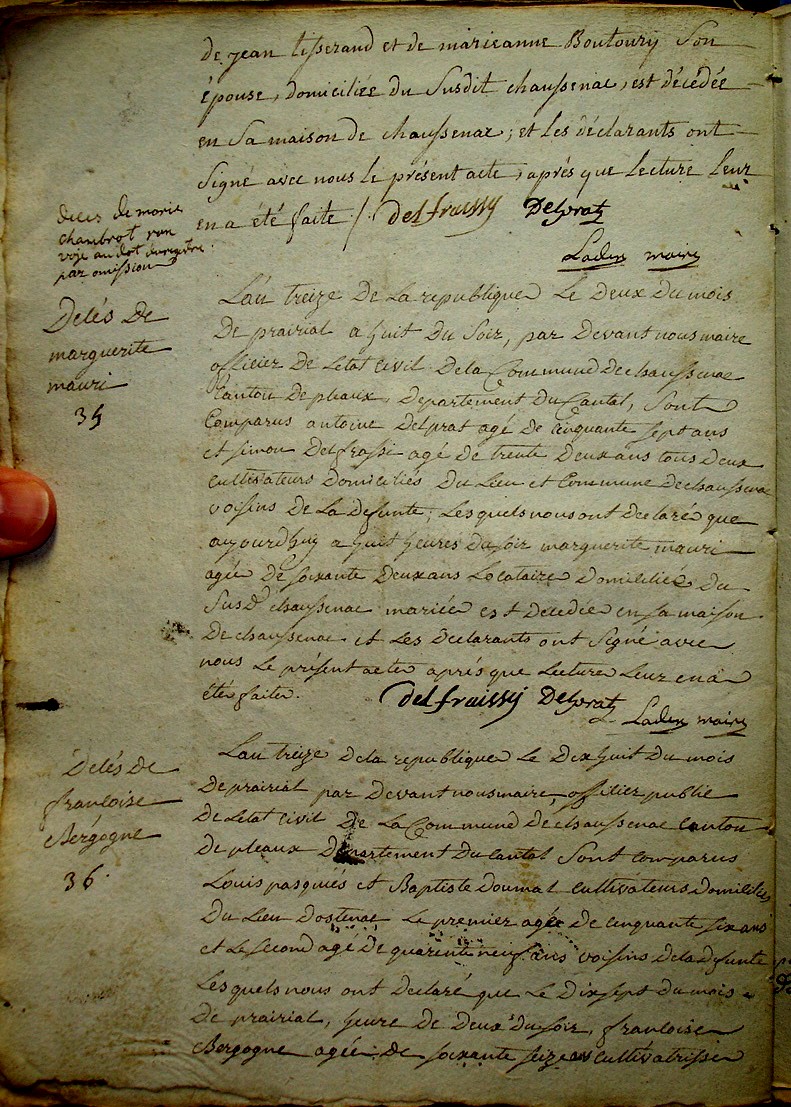 de jean tisserand et de marieanne Boutoury Son
épouse, domiciliée du Susdit chaussenac, est décédée
en Sa maison de chaussenac; et les déclarants ont
Signé avec nous le présent acte, aprés que lecture leur
en a été faite / delfraissy Delprat
Laden maire
deces de marie
chambrot
par omission
Decés De
marguerite
mauri
35
L'an treize De La republique Le Deux Du mois
De prairial a huit Du Soir, par Devant nous maire
officier De Letat Civil De la Commune De chaussenac
Canton De pleaux, Departement Du Cantal, Sont
Comparus antoine Delprat agé de Cinquante Sept ans
et Simon Delfrassi agé de trente Deux ans tous Deux
cultivateurs Domiciliés Du Lieu et Commune De chaussenac
voisins De La Defunte; Lesquels nous ont Declaré que
aujourdhuy a huit heures Du Soir marguerite mauri
agée De Soixante Deux ans Locataire Domiciliée Du
Susd chaussenac mariée est Decedée en Sa maison
De chaussenac et Les Declarants ont Signé avec
nous Le présent acte aprés que Lecture Leur en a
été faite. delfraissy Delprat
Laden maire
Decés De
francoise
Bergogne
36.
L'an treize De la republique Le Dix huit Du mois
De prairial par Devant nous maire, officier public
De Letat Civil De La Commune De chaussenac Canton
De pleaux Departement Du Cantal Sont comparus
Louis pasquiés et Baptiste Doumal cultivateurs Domiciliés
Du Lieu Dostenac Le premier agé de Cinquante Six ans
et Le Second agé De quarente neuf ans voisins De la Defunte
Lesquels nous ont Declaré que Le Dix Sept Du mois
De prairial, heure de Deux Du Soir, francoise
Bergogne agée de Soixante Seize ans cultivatrisse